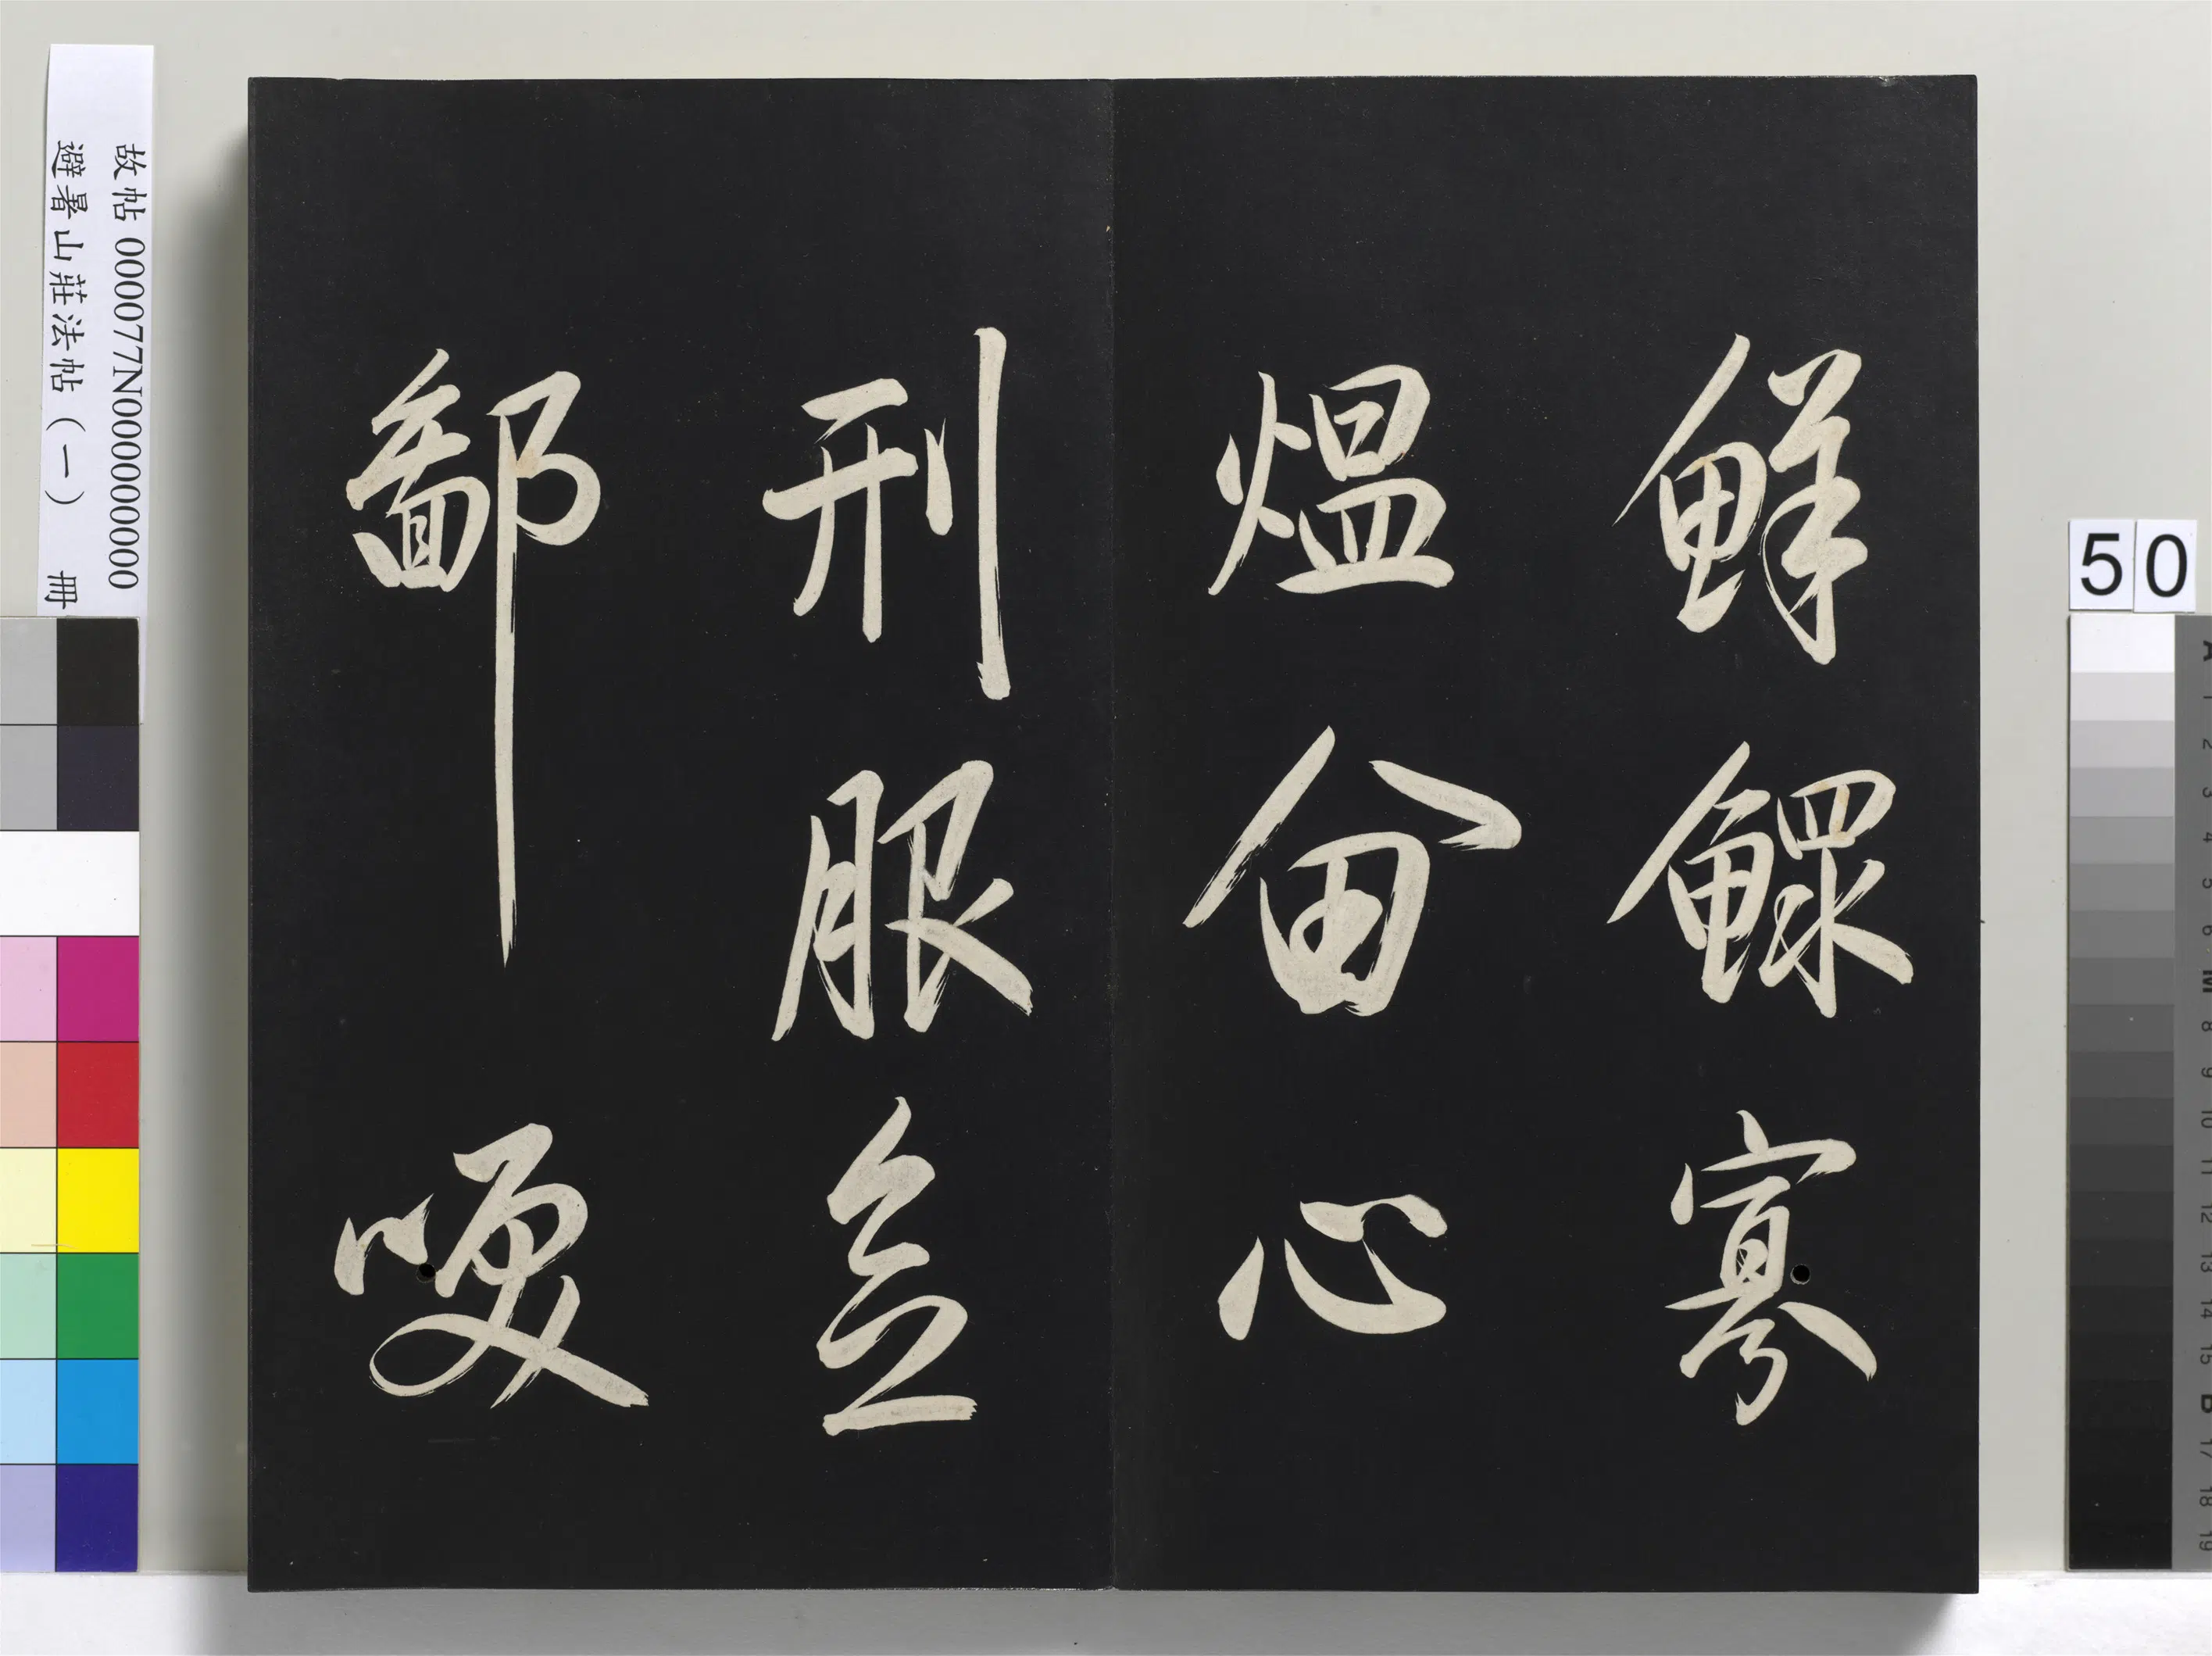 鮮鰥寡
熅畣心
刑服
鄙哽
故帖 000077N000000000
避暑山莊法帖（一） 冊
50
A 1 2 3 4 5 6 M 8 9 10 11 12 13 14 15 B 17 18 19